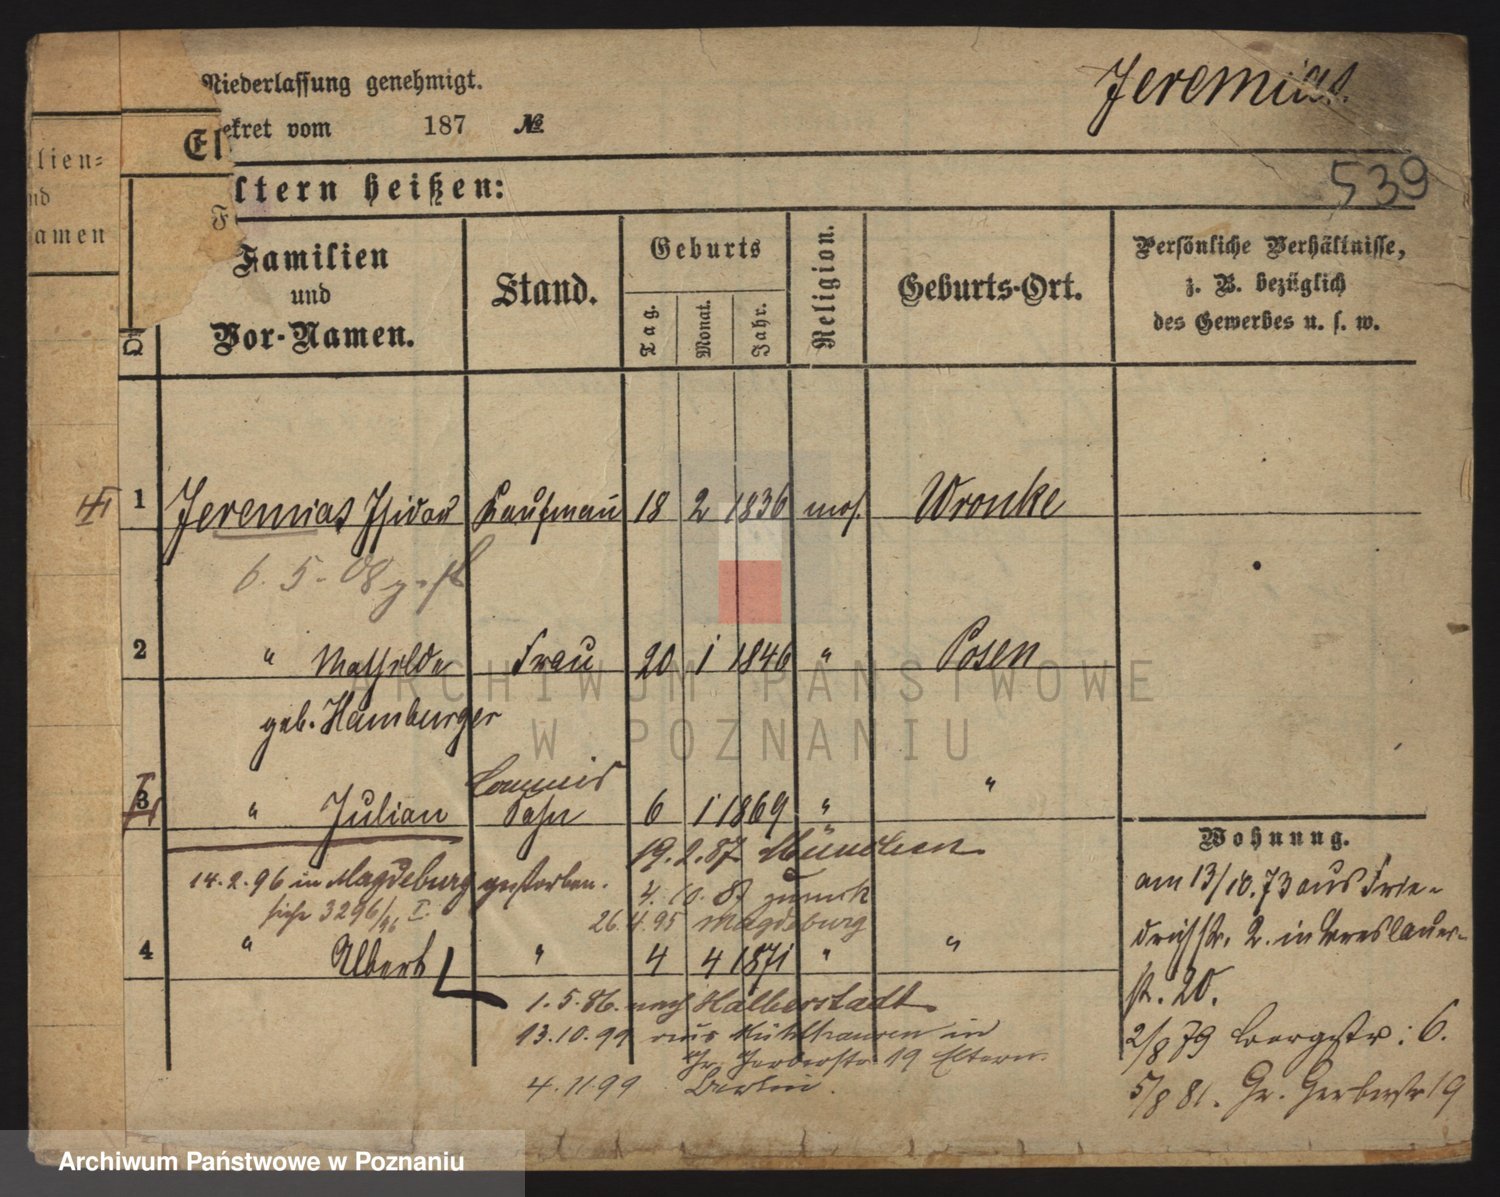 Niederlassung genehmigt.
Jeremias.
ekret vom 187 №
El
ltern heißen:
539
lien=
nd
amen
F
Familien
und
Vor-Namen.
Stand.
Geburts
Tag. Monat. Jahr.
Religion.
Geburts-Ort.
Persönliche Verhältnisse,
z. B. bezüglich
des Gewerbes u. s. w.
1 Jeremias Isidor Kaufmann 18 2 1836 mos. Wronke
6. 5. 08 gest
2 " Mathilde Frau 20 1 1846 " Posen
geb. Hamburger
Commis
3 " Julian Sohn 6 1 1869 " "
19. 2. 87 München
14. 2. 96 in Magdeburg gestorben.
4. 10. 87 zurück
siehe 3296/96 I.
26. 4. 95 Magdeburg
4 " Albert " 4 4 1871 " "
1. 5. 86. nach Halberstadt
13. 10. 99 aus Mühlhausen in
Gr. Gerberstr 19 Eltern.
4. 11 99 Berlin.
Wohnung.
am 13/10. 73 aus Frie-
drichstr. 2. in Breslauer-
st. 20.
2/8 79 Bergstr: 6.
5/8 81. Gr. Gerberstr 19
ARCHIWUM PAŃSTWOWE
W POZNANIU
Archiwum Państwowe w Poznaniu